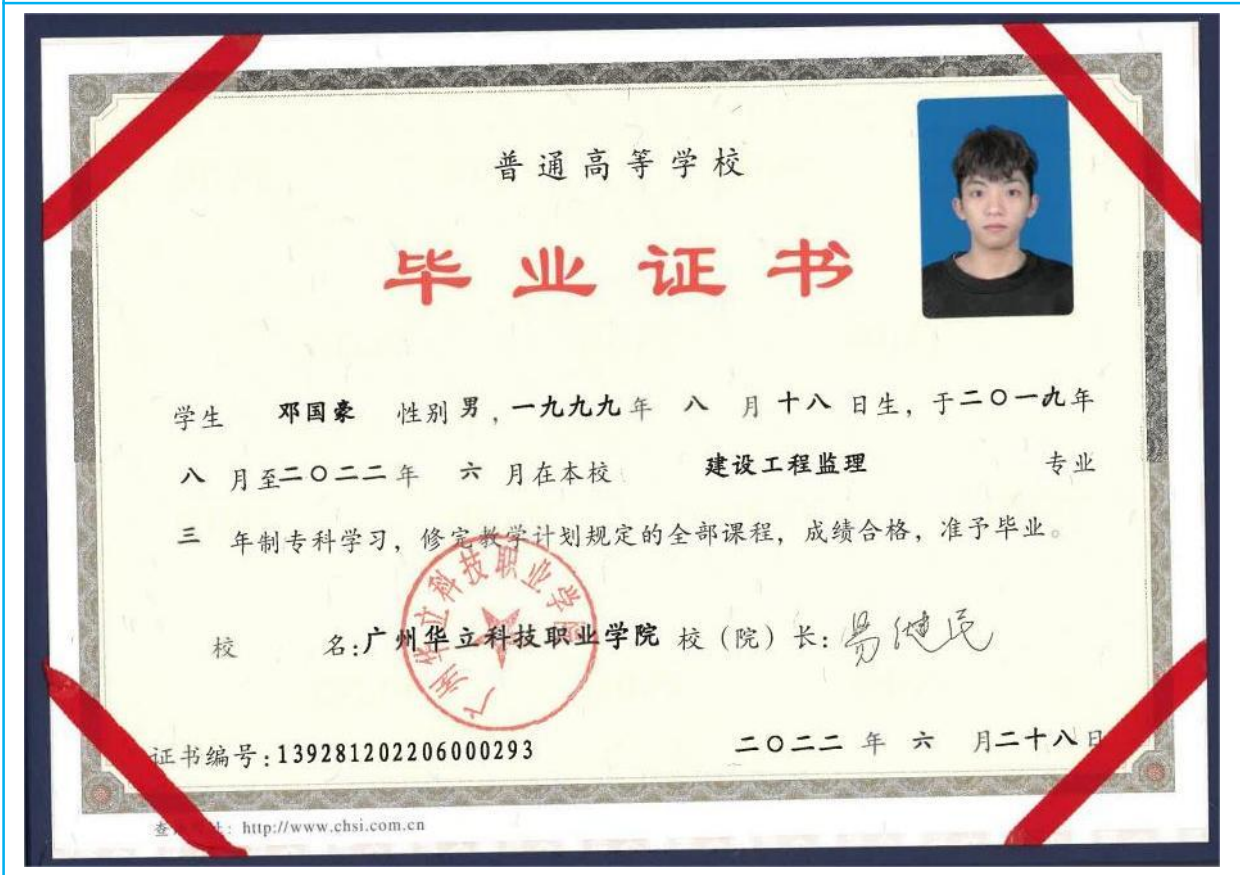 普通高等学校
毕业证书
学生 邓国豪 性别 男，一九九九年 八 月 十八 日生，于二〇一九年
八 月至二〇二二年 六 月在本校 建设工程监理 专业
三 年制专科学习，修完教学计划规定的全部课程，成绩合格，准予毕业。
广州华立科技职业学院
校 名：广州华立科技职业学院 校（院）长：易健民
证书编号：139281202206000293 二〇二二 年 六 月二十八日
查 址：http://www.chsi.com.cn